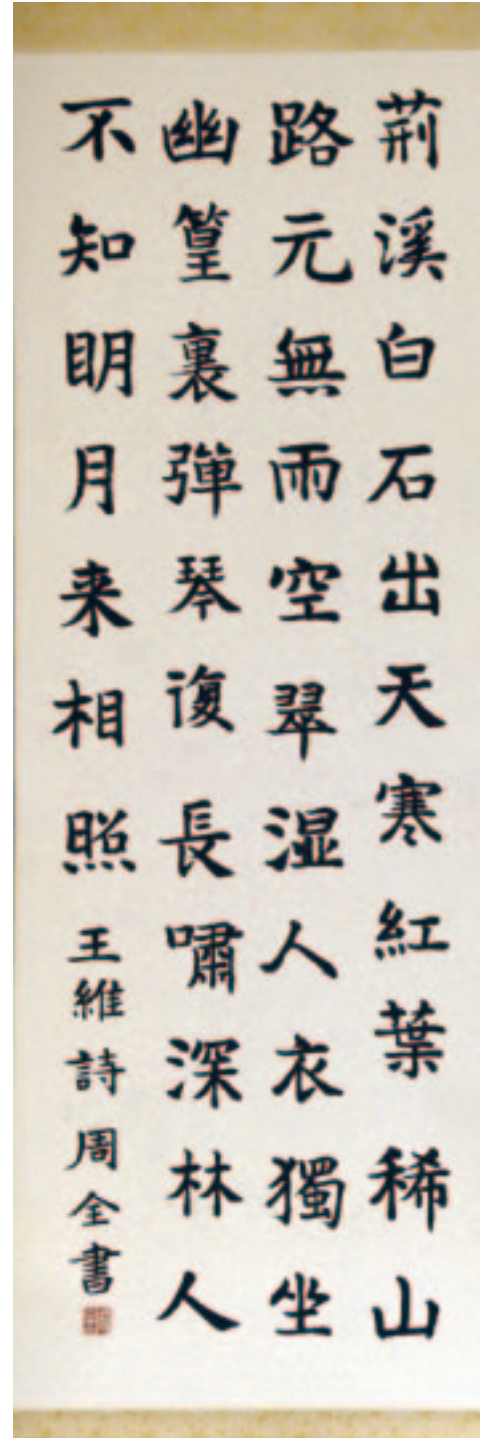 荊溪白石出天寒紅葉稀山
路元無雨空翠湿人衣獨坐
幽篁裏彈琴復長嘯深林人
不知明月来相照王維詩周全書